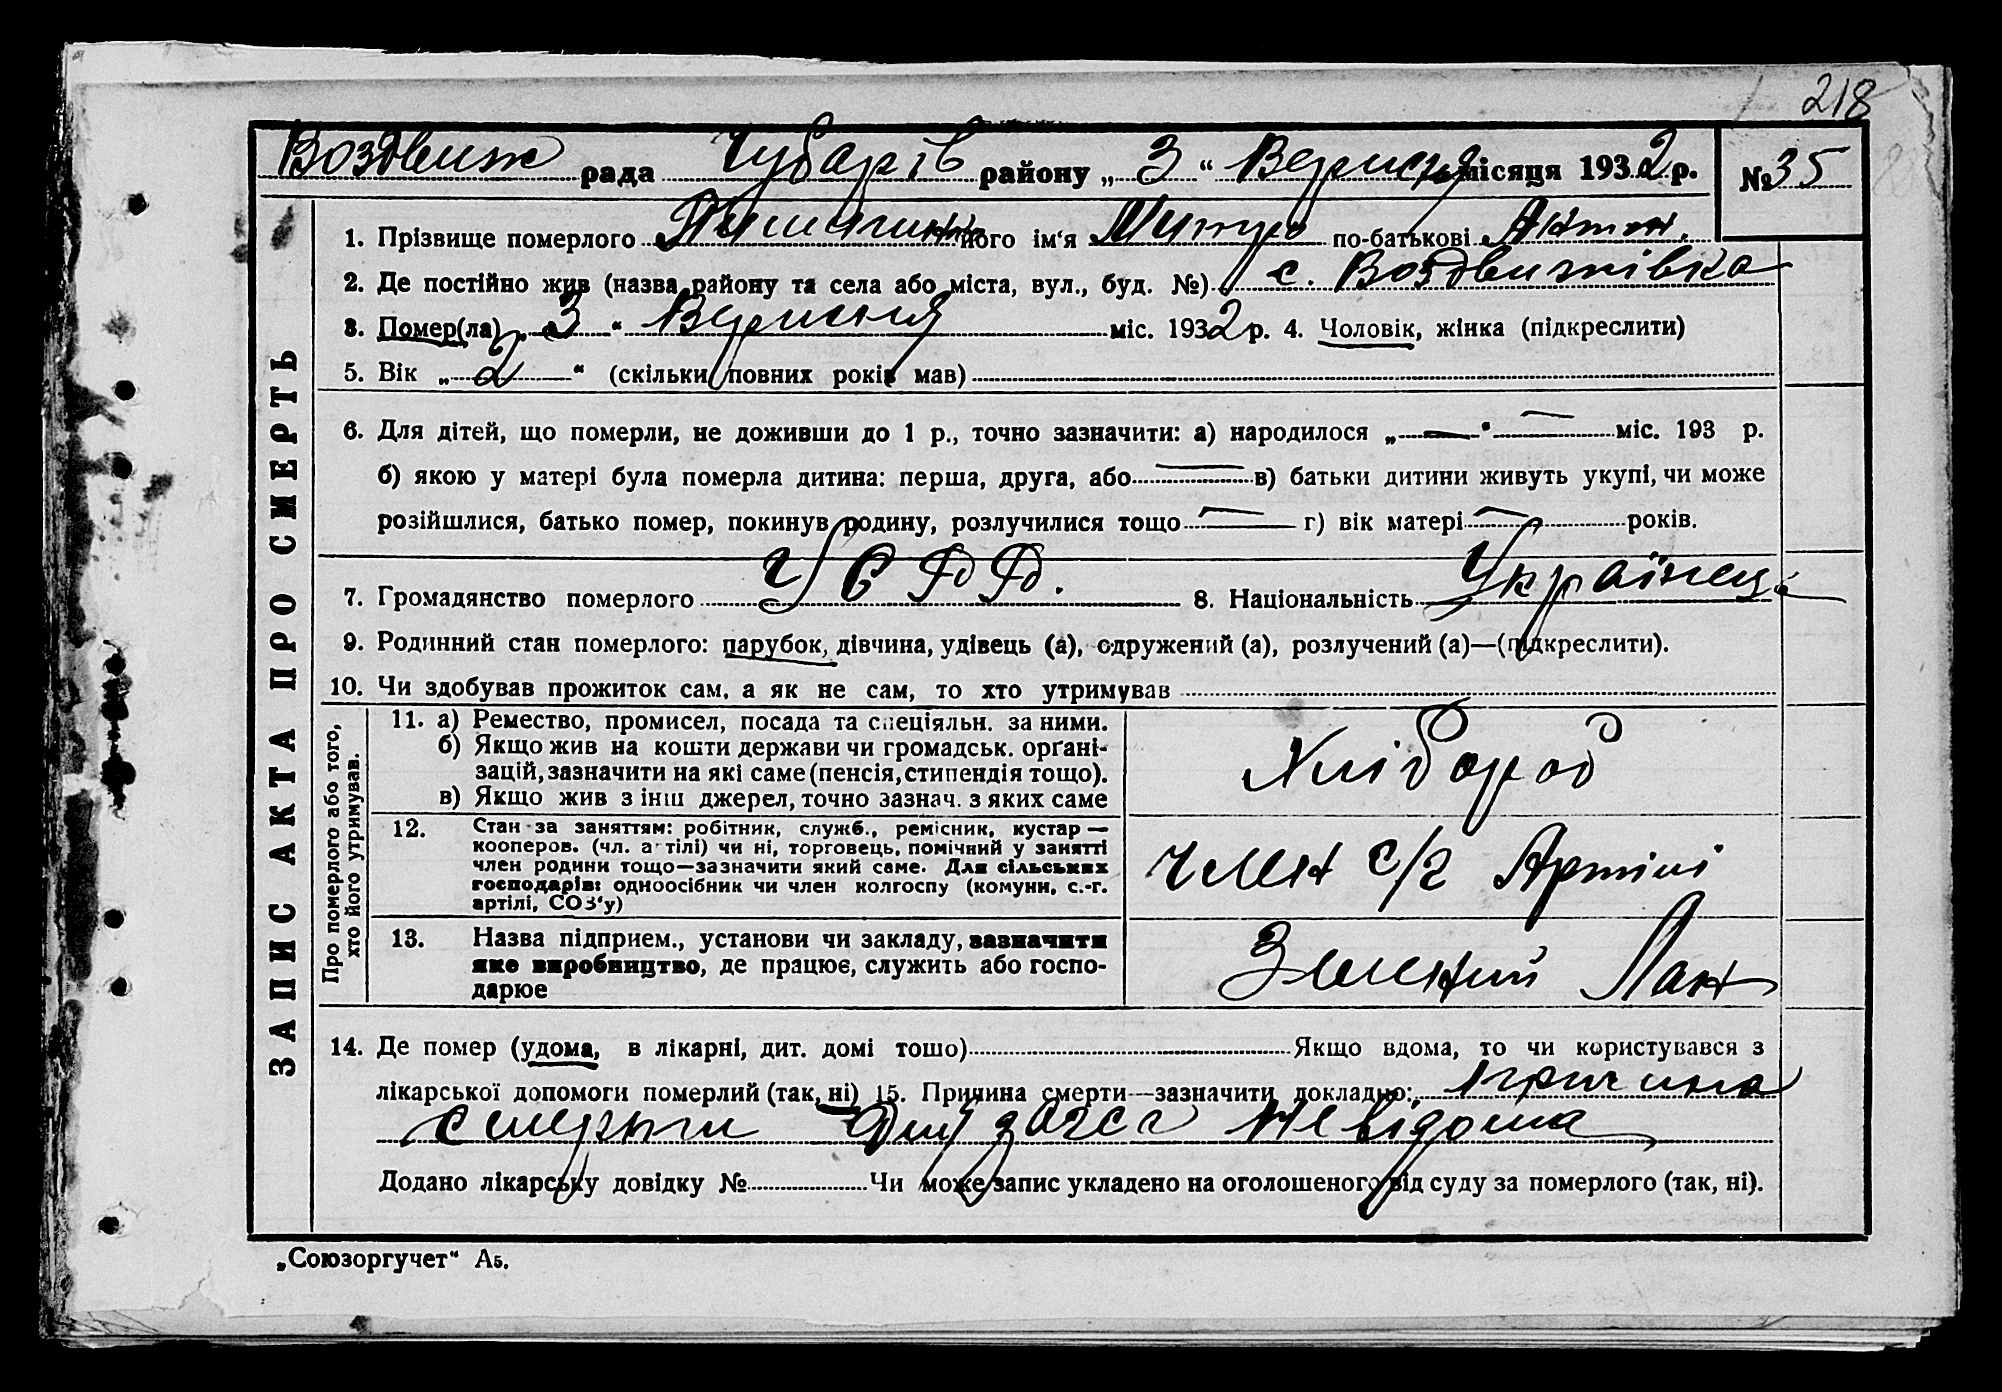 218
Воздвиж рада Чубарів району „ 3 “ Вересня місяця 1932 р. № 35
1. Прізвище померлого його ім‘я по-батькові Антон.
2. Де постійно жив (назва району та села або міста, вул., буд. №) с. Воздвижівка
3. Помер(ла) „ 3 “ Вересня міс. 1932 р. 4. Чоловік, жінка (підкреслити)
5. Вік „ 2 “ (скільки повних років мав)
6. Для дітей, що померли, не доживши до 1 р., точно зазначити: а) народилося „ — “ — міс. 193 р.
б) якою у матері була померла дитина: перша, друга, або — в) батьки дитини живуть укупі, чи може
розійшлися, батько помер, покинув родину, розлучилися тощо — г) вік матері — років.
7. Громадянство померлого УСРР. 8. Національність Українец
9. Родинний стан померлого: парубок, дівчина, удівець (а), одружений (а), розлучений (а)—(підкреслити).
10. Чи здобував прожиток сам, а як не сам, то хто утримував
ЗАПИС АКТА ПРО СМЕРТЬ
Про померлого або того,
хто його утримував.
11. а) Ремество, промисел, посада та спеціяльн. за ними.
б) Якщо жив на кошти держави чи громадськ. орґані-
зацій, зазначити на які саме (пенсія, стипендія тощо).
в) Якщо жив з інш джерел, точно зазнач. з яких саме
Хлібороб
12. Стан за заняттям: робітник, служб., ремісник, кустар —
кооперов. (чл. артілі) чи ні, торговець, помічний у занятті
член родини тощо—зазначити який саме. Для сільських
господарів: одноосібник чи член колгоспу (комуни, с.-г.
артілі, СОЗ‘у)
член с/г Артілі
13. Назва підприєм., установи чи закладу, зазначити
яке виробництво, де працює, служить або госпо-
дарює
Лан
14. Де помер (удома, в лікарні, дит. домі тошо) Якщо вдома, то чи користувався з
лікарської допомоги померлий (так, ні) 15. Причина смерти—зазначити докладно: причина
смерты невідома
Додано лікарську довідку № Чи може запис укладено на оголошеного від суду за померлого (так, ні).
„Союзоргучет“ А5.